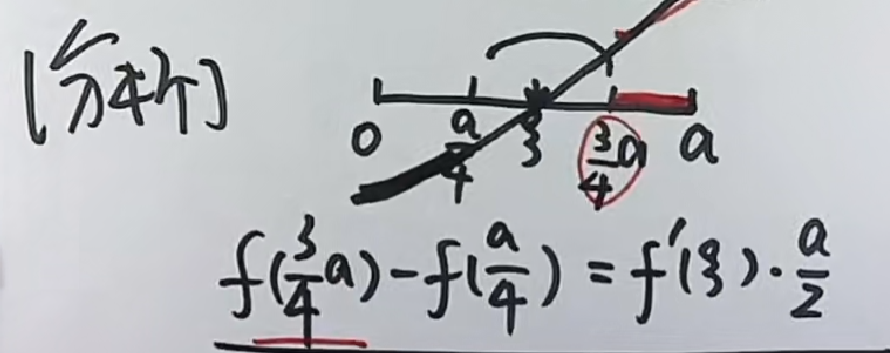 [分析]
0 a/4 ξ 3/4 a a
f(3/4 a) - f(a/4) = f'(ξ) · a/2